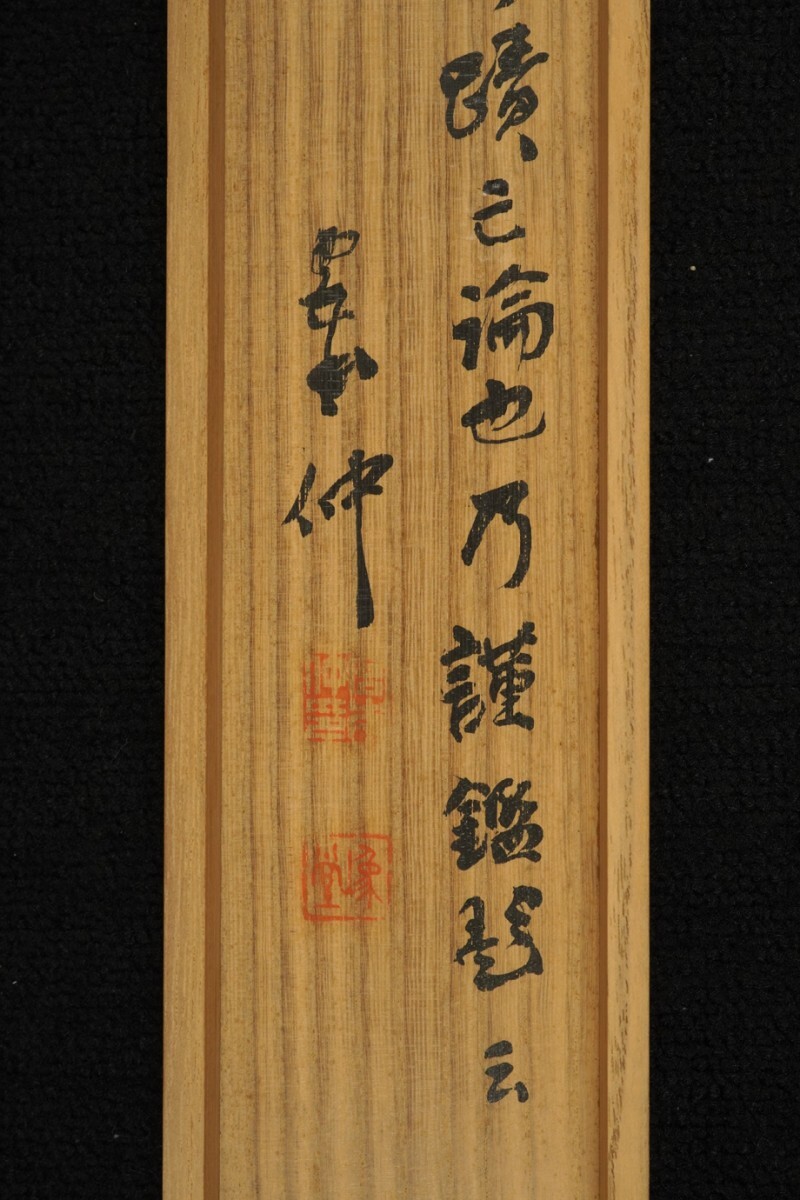 蹟亡論也乃謹鑑題云
仲